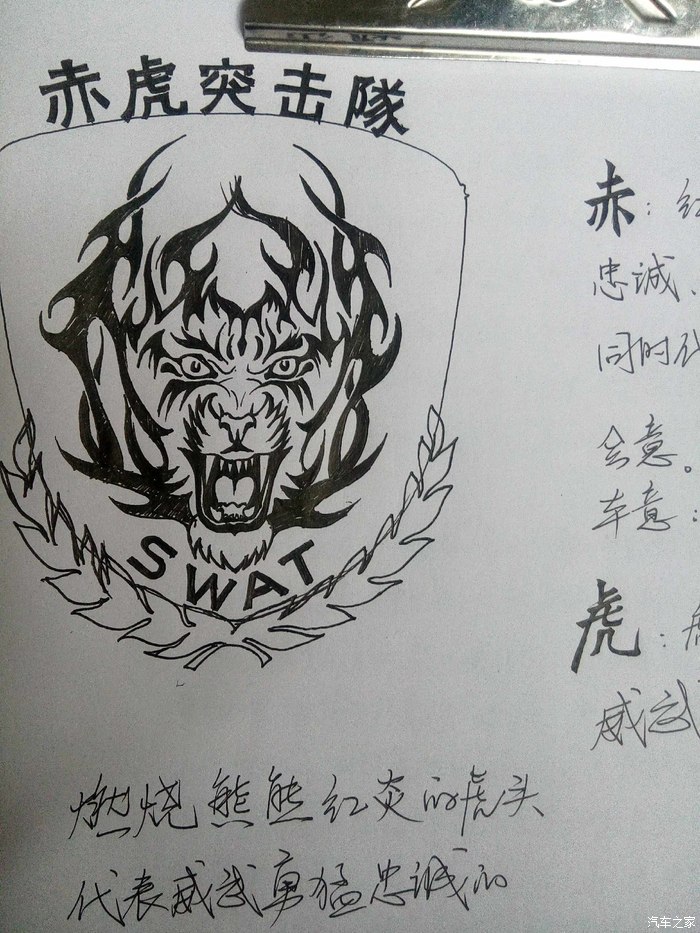 赤虎突击隊
SWAT
赤：红
忠诚、
同时代
会意。
车意：
虎：虎
威武
燃烧熊熊红炎的虎头
代表威武勇猛忠诚的
汽车之家